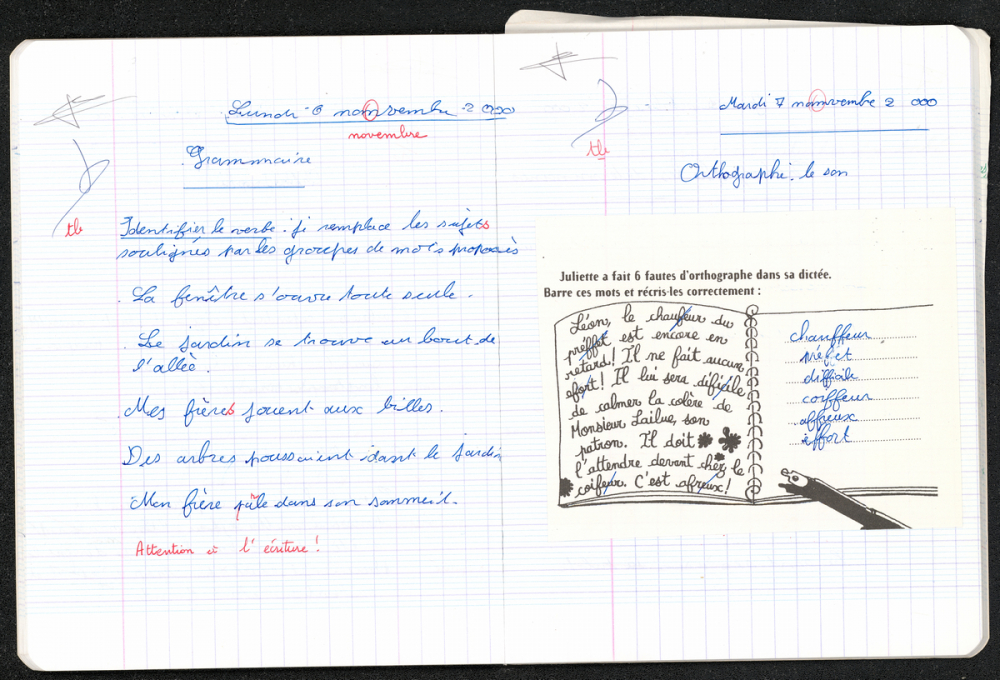 Lundi 6 nomvembre 2000
novembre
Grammaire
tb
Identifier le verbe : je remplace les sujets
soulignés par les groupes de mots proposés
. La fenêtre s'ouvre toute seule.
. Le jardin se trouve au bout de
l'allée.
Mes frères jouent aux billes.
Des arbres poussaient dans le jardin
Mon frère râle dans son sommeil.
Attention à l'écriture !
Mardi 7 nomvembre 2000
tb
Orthographe : le son
Juliette a fait 6 fautes d'orthographe dans sa dictée.
Barre ces mots et récris-les correctement :
Léon, le chaufeur du
préffet est encore en
retard! Il ne fait aucun
efort! Il lui sera dificile
de calmer la colère de
Monsieur Lailue, son
patron. Il doit
l'attendre devant chez le
coifeur. C'est afreux!
chauffeur
préfet
difficile
coiffeur
affreux
effort